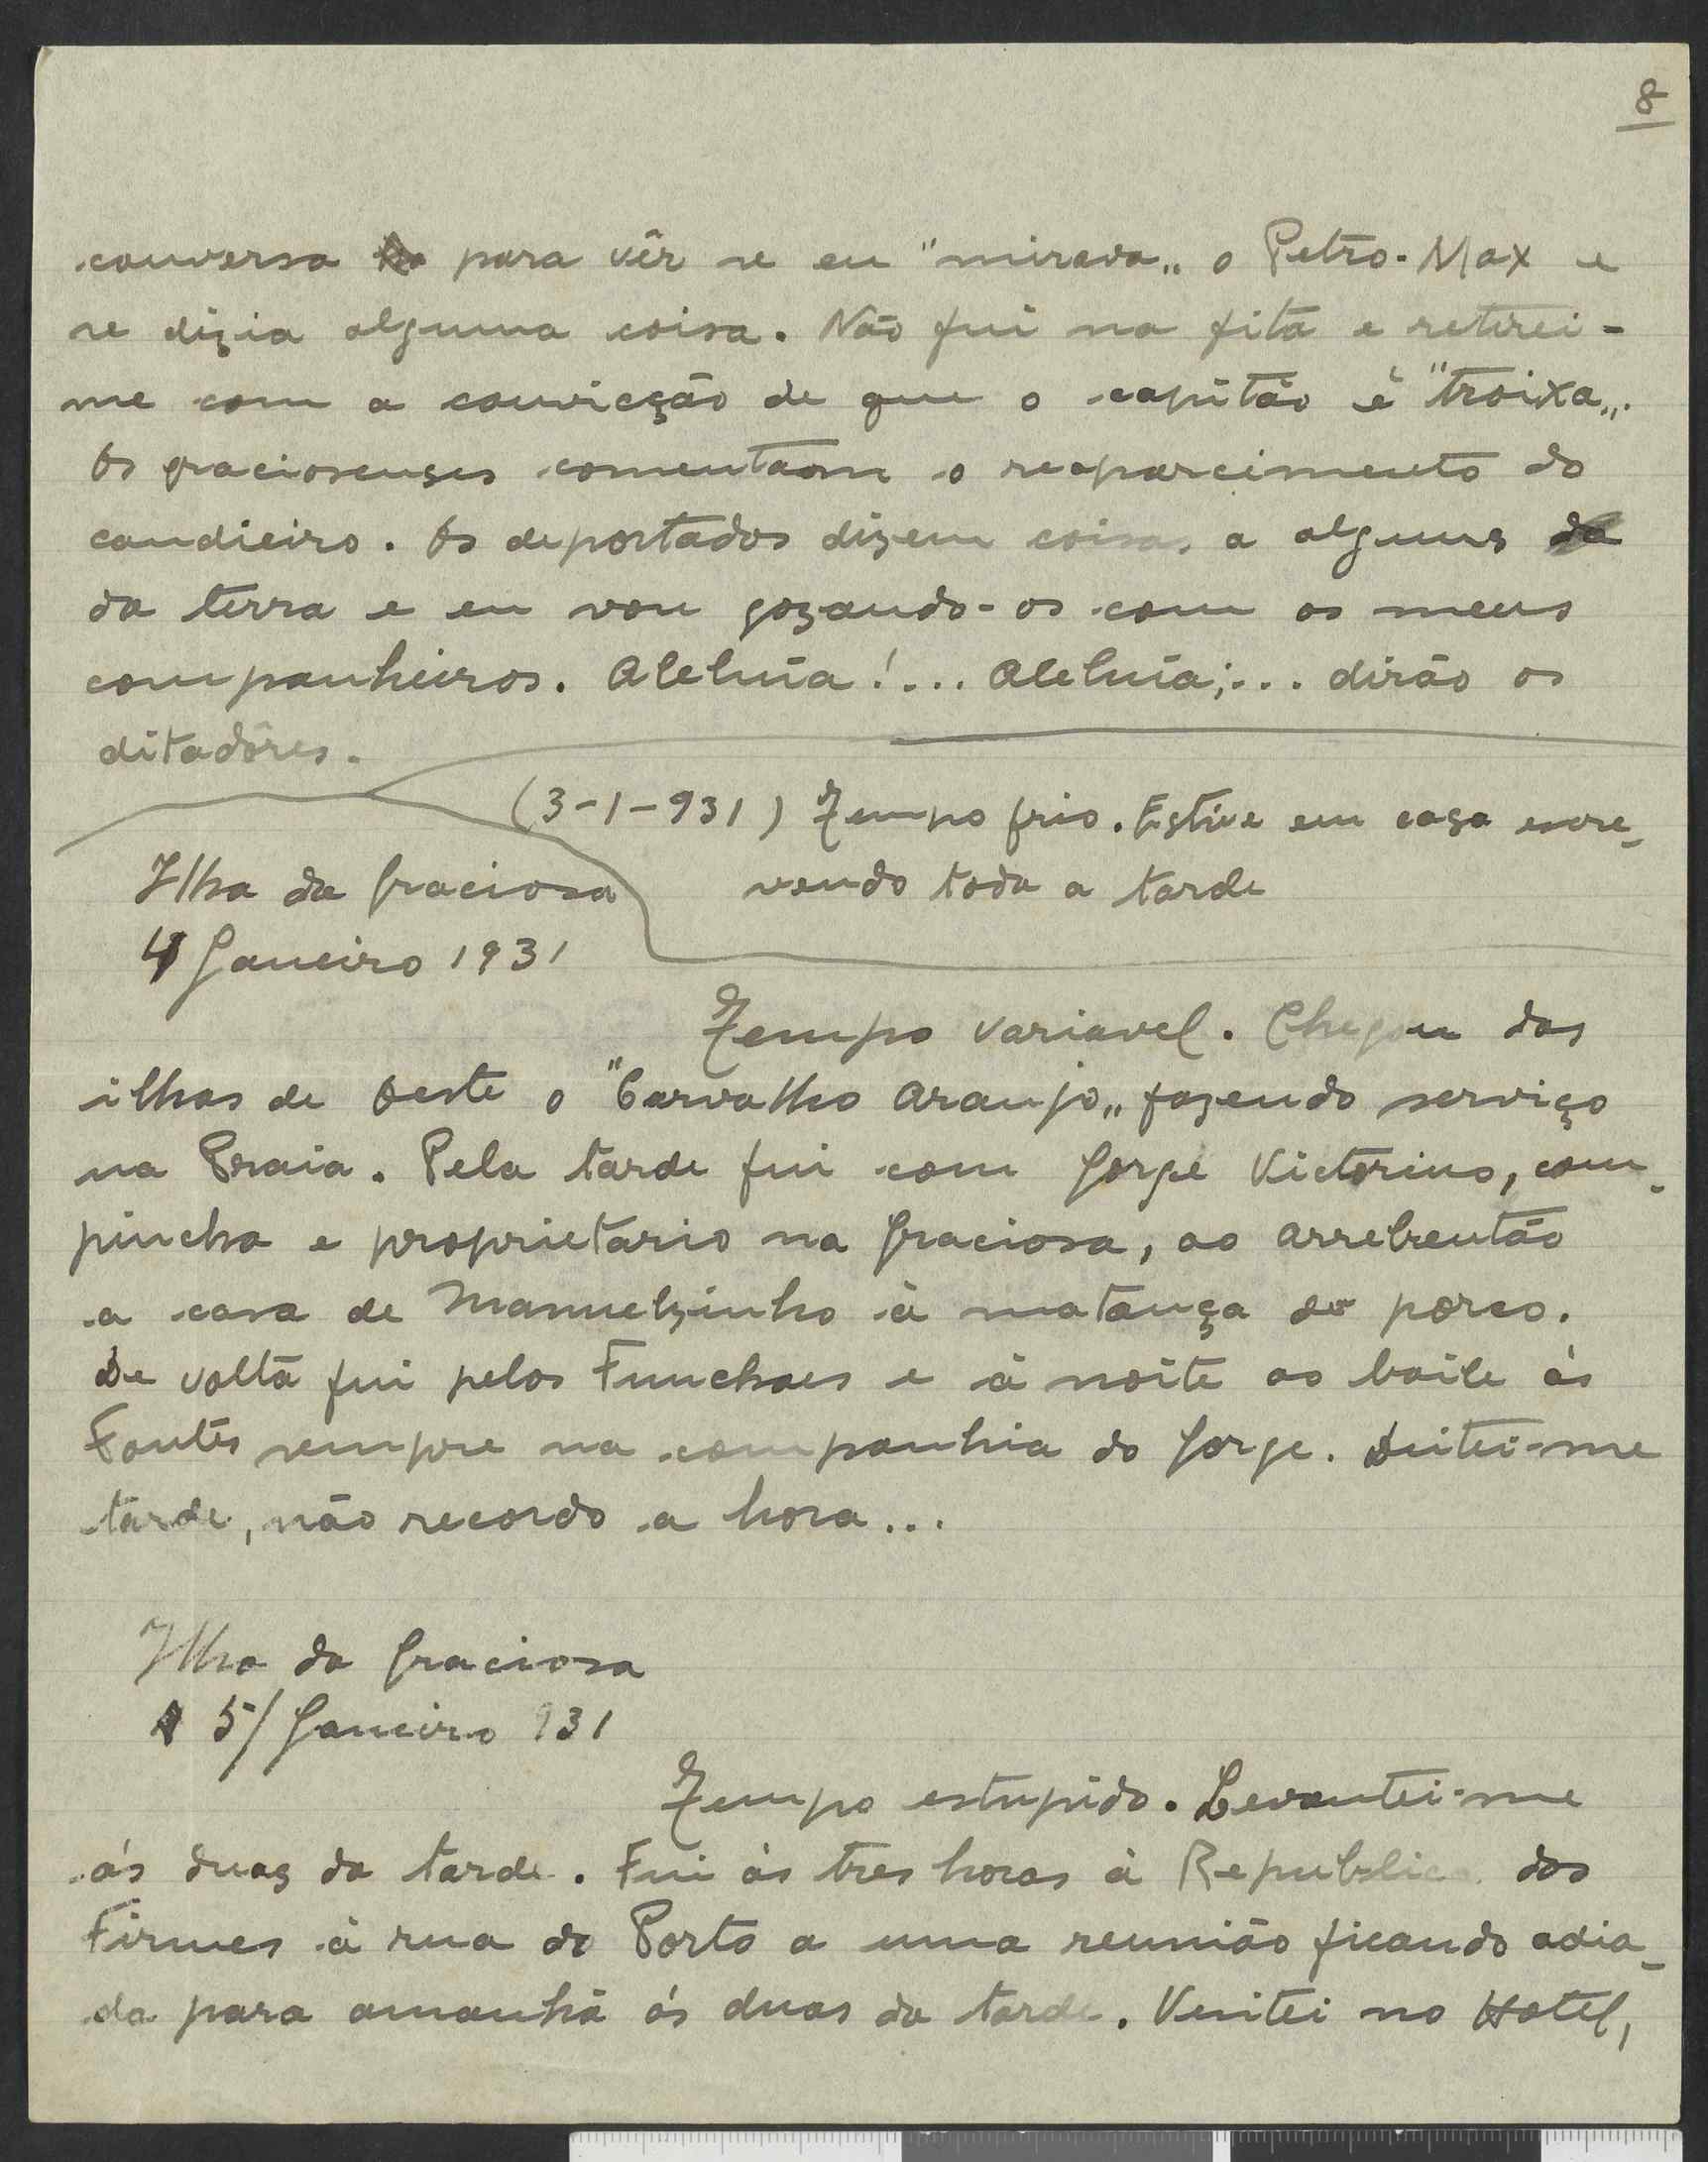 8
conversa para vêr se eu "mirava„ o Petro-Max e
se dizia alguma coisa. Não fui na fita e retirei-
me com a convicção de que o capitão é "troixa„.
Os graciosenses comentam o reaparcimento do
candieiro. Os deportados dizem coisas a alguns da
da terra e eu vou gozando-os com os meus
companheiros. Aleluia!... Aleluia;... dirão os
ditadôres.
(3-1-931) Tempo frio. Estive em casa escre-
vendo toda a tarde
Ilha da Graciosa
4 Janeiro 1931
Tempo variavel. Chegou das
ilhas de Oeste o "Carvalho Araujo„ fazendo serviço
na Praia. Pela tarde fui com Jorge Victorino, com-
pincha e proprietario na Graciosa, ao Arrebentão
a casa de Manuelzinho à matança do porco.
De volta fui pelos Funchaes e à noite ao baile ás
Fontes sempre na companhia do Jorge. Deitei-me
tarde, não recordo a hora...
Ilha da Graciosa
5/Janeiro 931
Tempo estupido. Levantei-me
ás duas da tarde. Fui ás tres horas à Republica dos
Firmes à rua do Porto a uma reunião ficando adia-
da para amanhã ás duas da tarde. Visitei no Hotel,